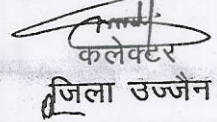 कलेक्टर
जिला उज्जैन